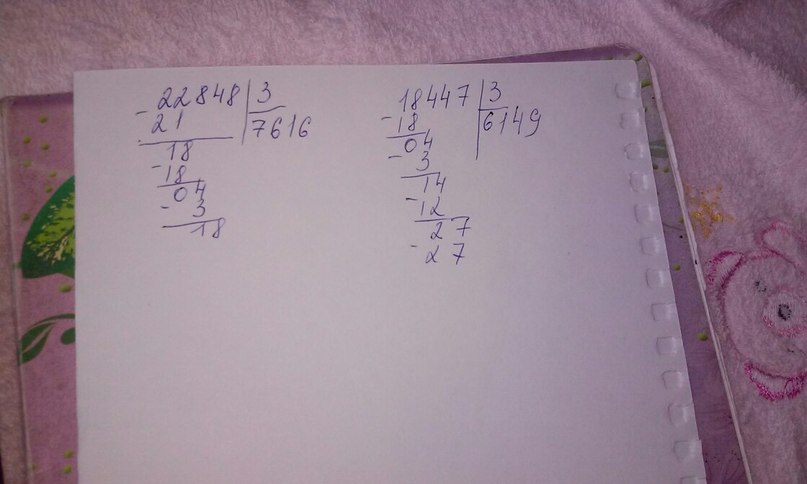 - 22848 | 3
21 | 7616
18
- 18
04
- 3
18
18447 | 3
- 18 | 6149
04
- 3
14
- 12
27
- 27